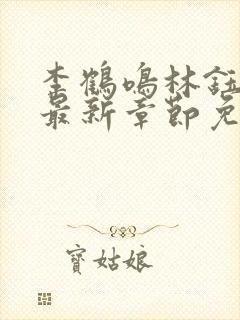 李鹤鸣林钰
最新章节免
寶姑娘